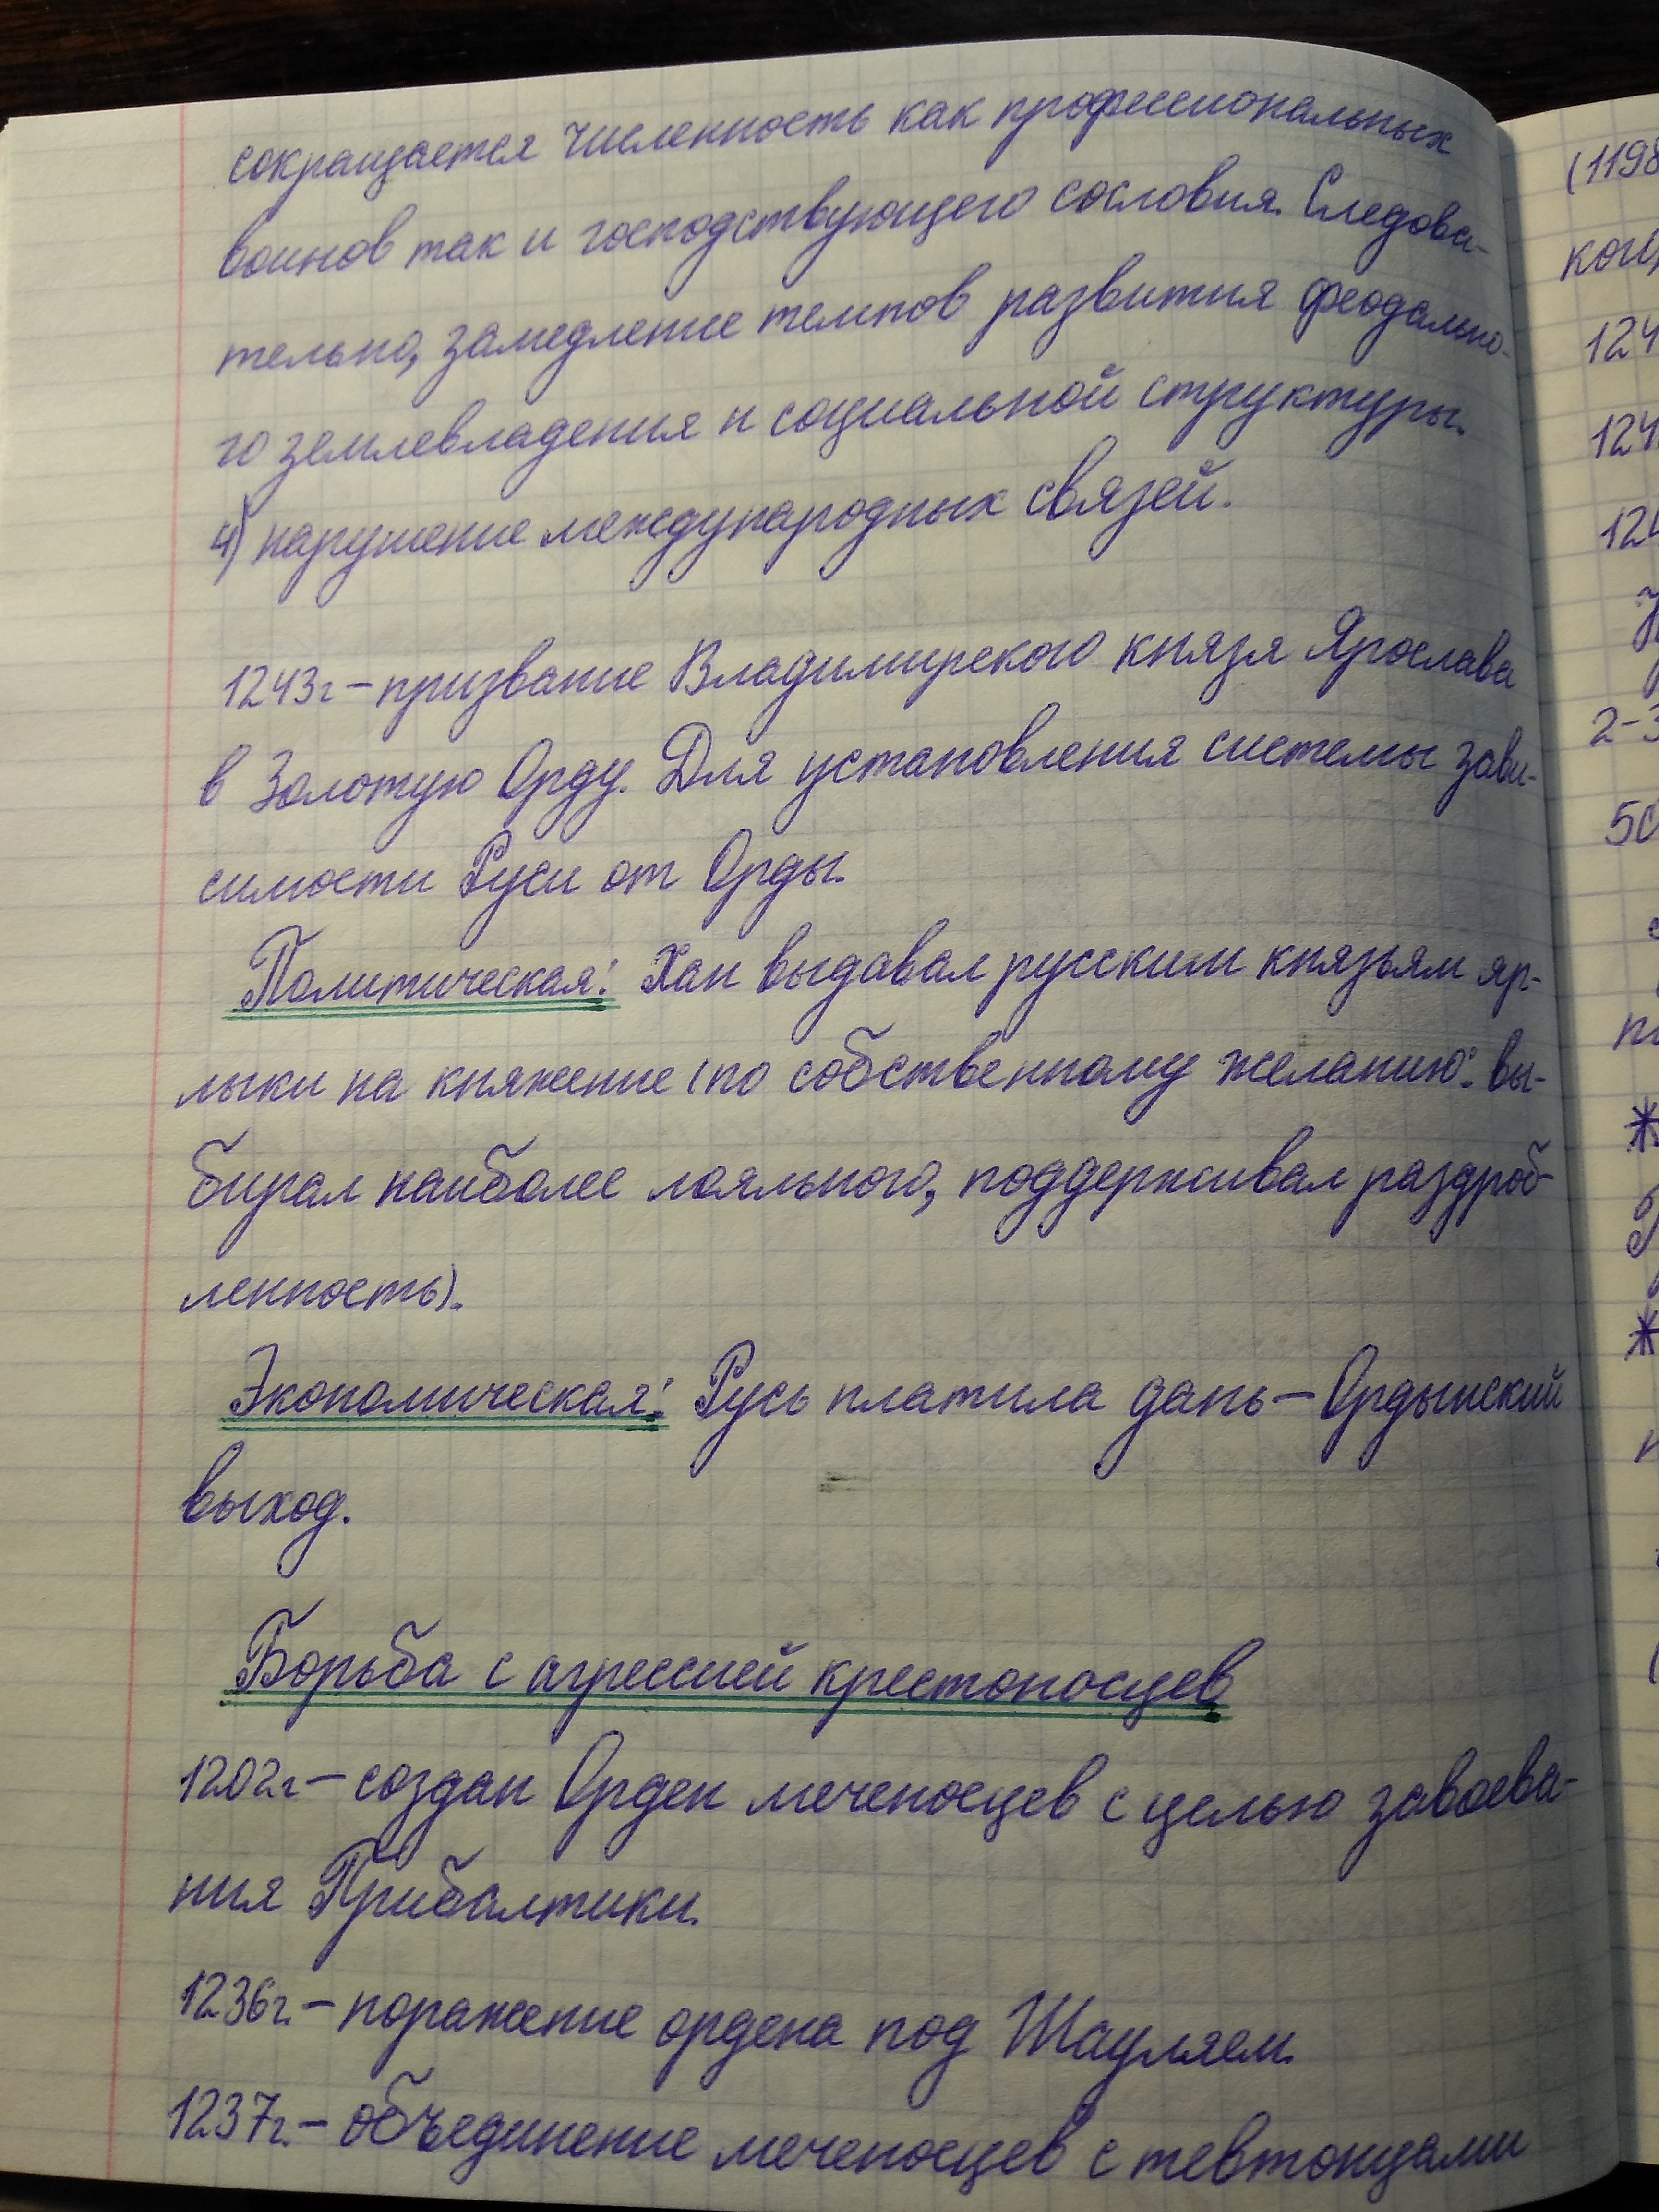 сокращается численность как профессиональных
воинов так и господствующего сословия. Следова-
тельно, замедление темпов развития феодально-
го землевладения и социальной структуры.
4) нарушение международных связей.
1243г – призвание Владимирского князя Ярослава
в Золотую Орду. Для установления системы зави-
симости Руси от Орды.
Политическая: Хан выдавал русским князьям яр-
лыки на княжение (по собственному желанию: вы-
бирал наиболее лояльного, поддерживал раздроб-
ленность).
Экономическая: Русь платила дань – Ордынский
выход.
Борьба с агрессией крестоносцев
1202г – создан Орден меченосцев с целью завоева-
ния Прибалтики.
1236г. – поражение ордена под Шауляем.
1237г. – объединение меченосцев с тевтонцами
(1198
2-3